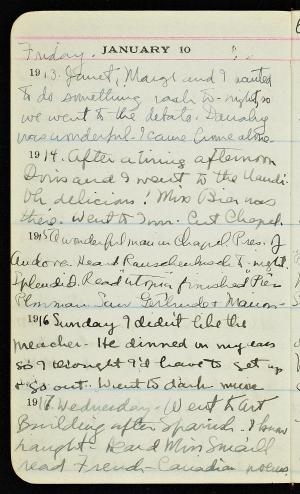 Friday. JANUARY 10
1913. Janet, Marg. and I wanted
to do something rash to-night, so
we went to the debate.
was wonderful - I came home alone.
1914. After a tiring afternoon
Doris and I went to the Vaudi.
Oh delicious! Miss was
there. Went to Inn. Cut Chapel.
1915 A wonderful man in Chapel Pres. of
Andova. Heard Rauschenbusch to-night.
Splendid. Read "Utopia" finished "Piers
Plowman" Saw Gertrude + Marion -
1916 Sunday I didn't like the
preacher - He dinned in my ears
so I thought I'd have to get up
+ go out. Went to dark music
1917. Wednesday - Went to Art
Building after Spanish. I know
naught - Heard Miss Small
read French-Canadian poems.